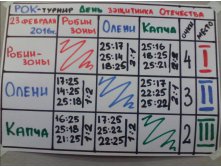 РОК-турнир День защитника Отечества
23 февраля 2016г. Робин-зоны Олени Капча очки место
Робин-зоны 25:17 25:14 18:25 2:1 25:16 18:25 2:1 4 I
Олени 17:25 14:25 25:18 1:2 25:17 22:25 25:22 2:1 3 II
Капча 16:25 25:18 1:2 17:25 25:22 22:25 1:2 2 III